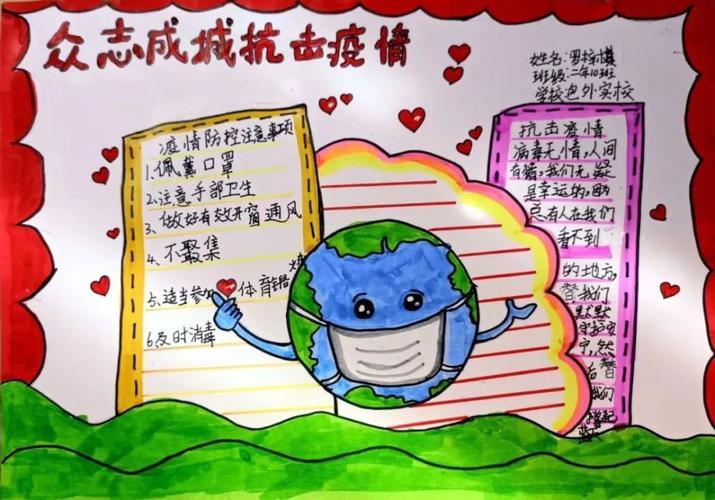 众志成城抗击疫情
姓名:罗
班级:二年10班
学校包外实校
疫情防控注意事项
1.佩戴口罩
2.注意手部卫生
3、做好有效开窗通风
4、不聚集
5、适当参加体育锻炼
6及时消毒
抗击疫情
病毒无情,人间
有情,我们无疑
是幸运的,因为
总有人在我们
看不到
的地方,
替我们
默默
守护安
宁,然
后替
我们
撑起
蓝天